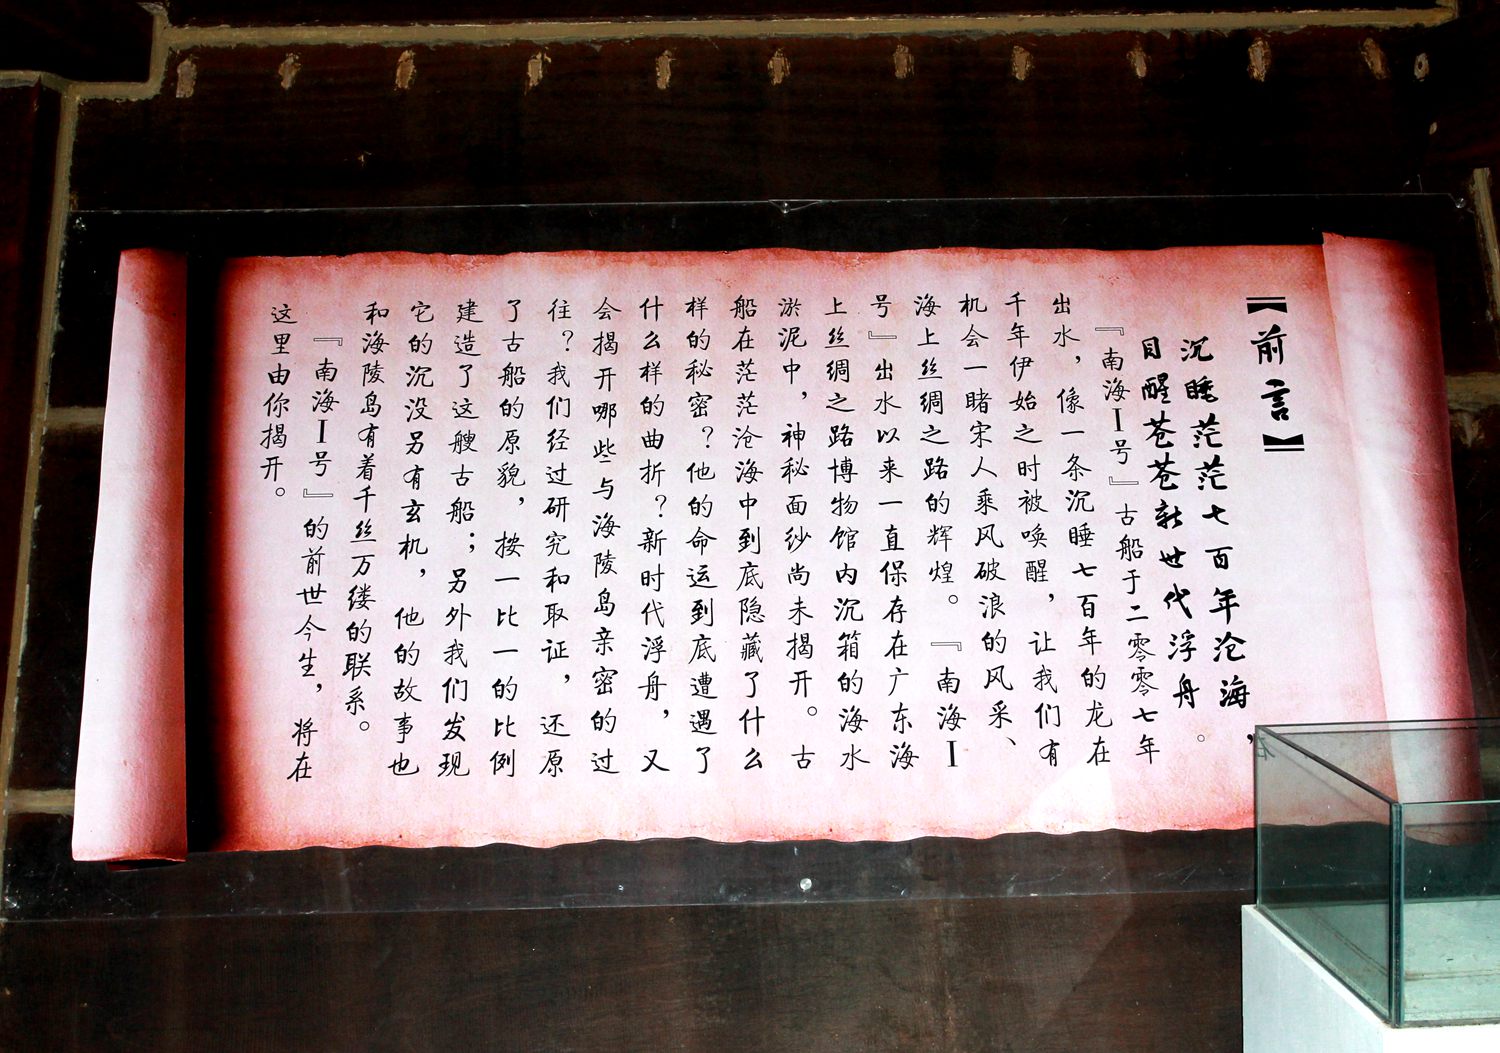 【前言】
沉睡茫茫七百年沧海，
目醒苍苍新世代浮舟。
『南海Ⅰ号』古船于二零零七年
出水，像一条沉睡七百年的龙在
千年伊始之时被唤醒，让我们有
机会一睹宋人乘风破浪的风采、
海上丝绸之路的辉煌。『南海Ⅰ
号』出水以来一直保存在广东海
上丝绸之路博物馆内沉箱的海水
淤泥中，神秘面纱尚未揭开。古
船在茫茫沧海中到底隐藏了什么
样的秘密？他的命运到底遭遇了
什么样的曲折？新时代浮舟，又
会揭开哪些与海陵岛亲密的过
往？我们经过研究和取证，还原
了古船的原貌，按一比一的比例
建造了这艘古船；另外我们发现
它的沉没另有玄机，他的故事也
和海陵岛有着千丝万缕的联系。
『南海Ⅰ号』的前世今生，将在
这里由你揭开。